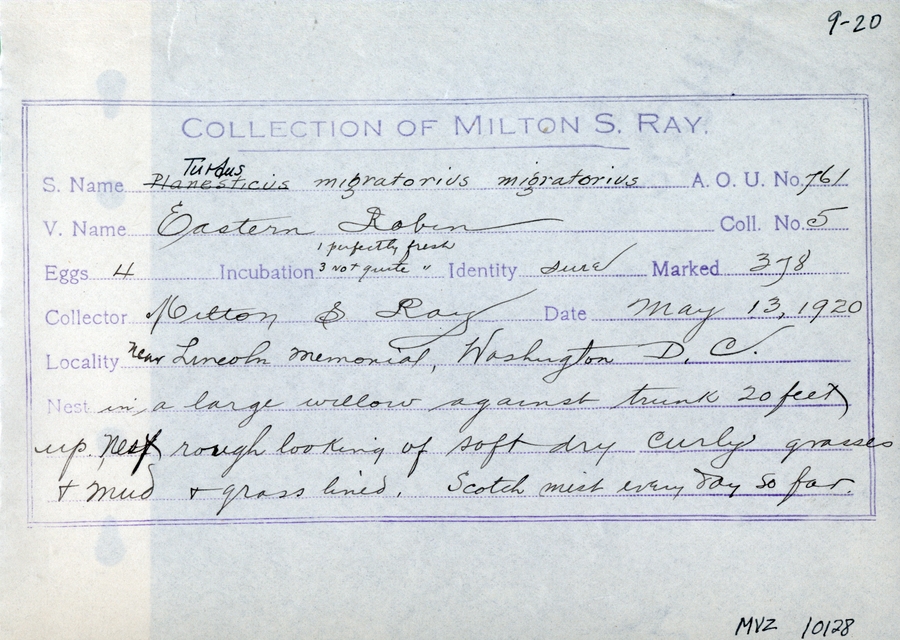 9-20
COLLECTION OF MILTON S. RAY.
Turdus
S. Name Planesticus migratorius migratorius A. O. U. No. 761
V. Name Eastern Robin Coll. No. 5
1 perfectly fresh
Eggs 4 Incubation 3 not quite " Identity sure Marked 378
Collector Milton S Ray Date May 13, 1920
Locality near Lincoln Memorial, Washington D. C.
Nest in a large willow against trunk 20 feet
up. Nest rough looking of soft dry curly grasses
+ mud + grass lined. Scotch mist every day so far.
MVZ 10128